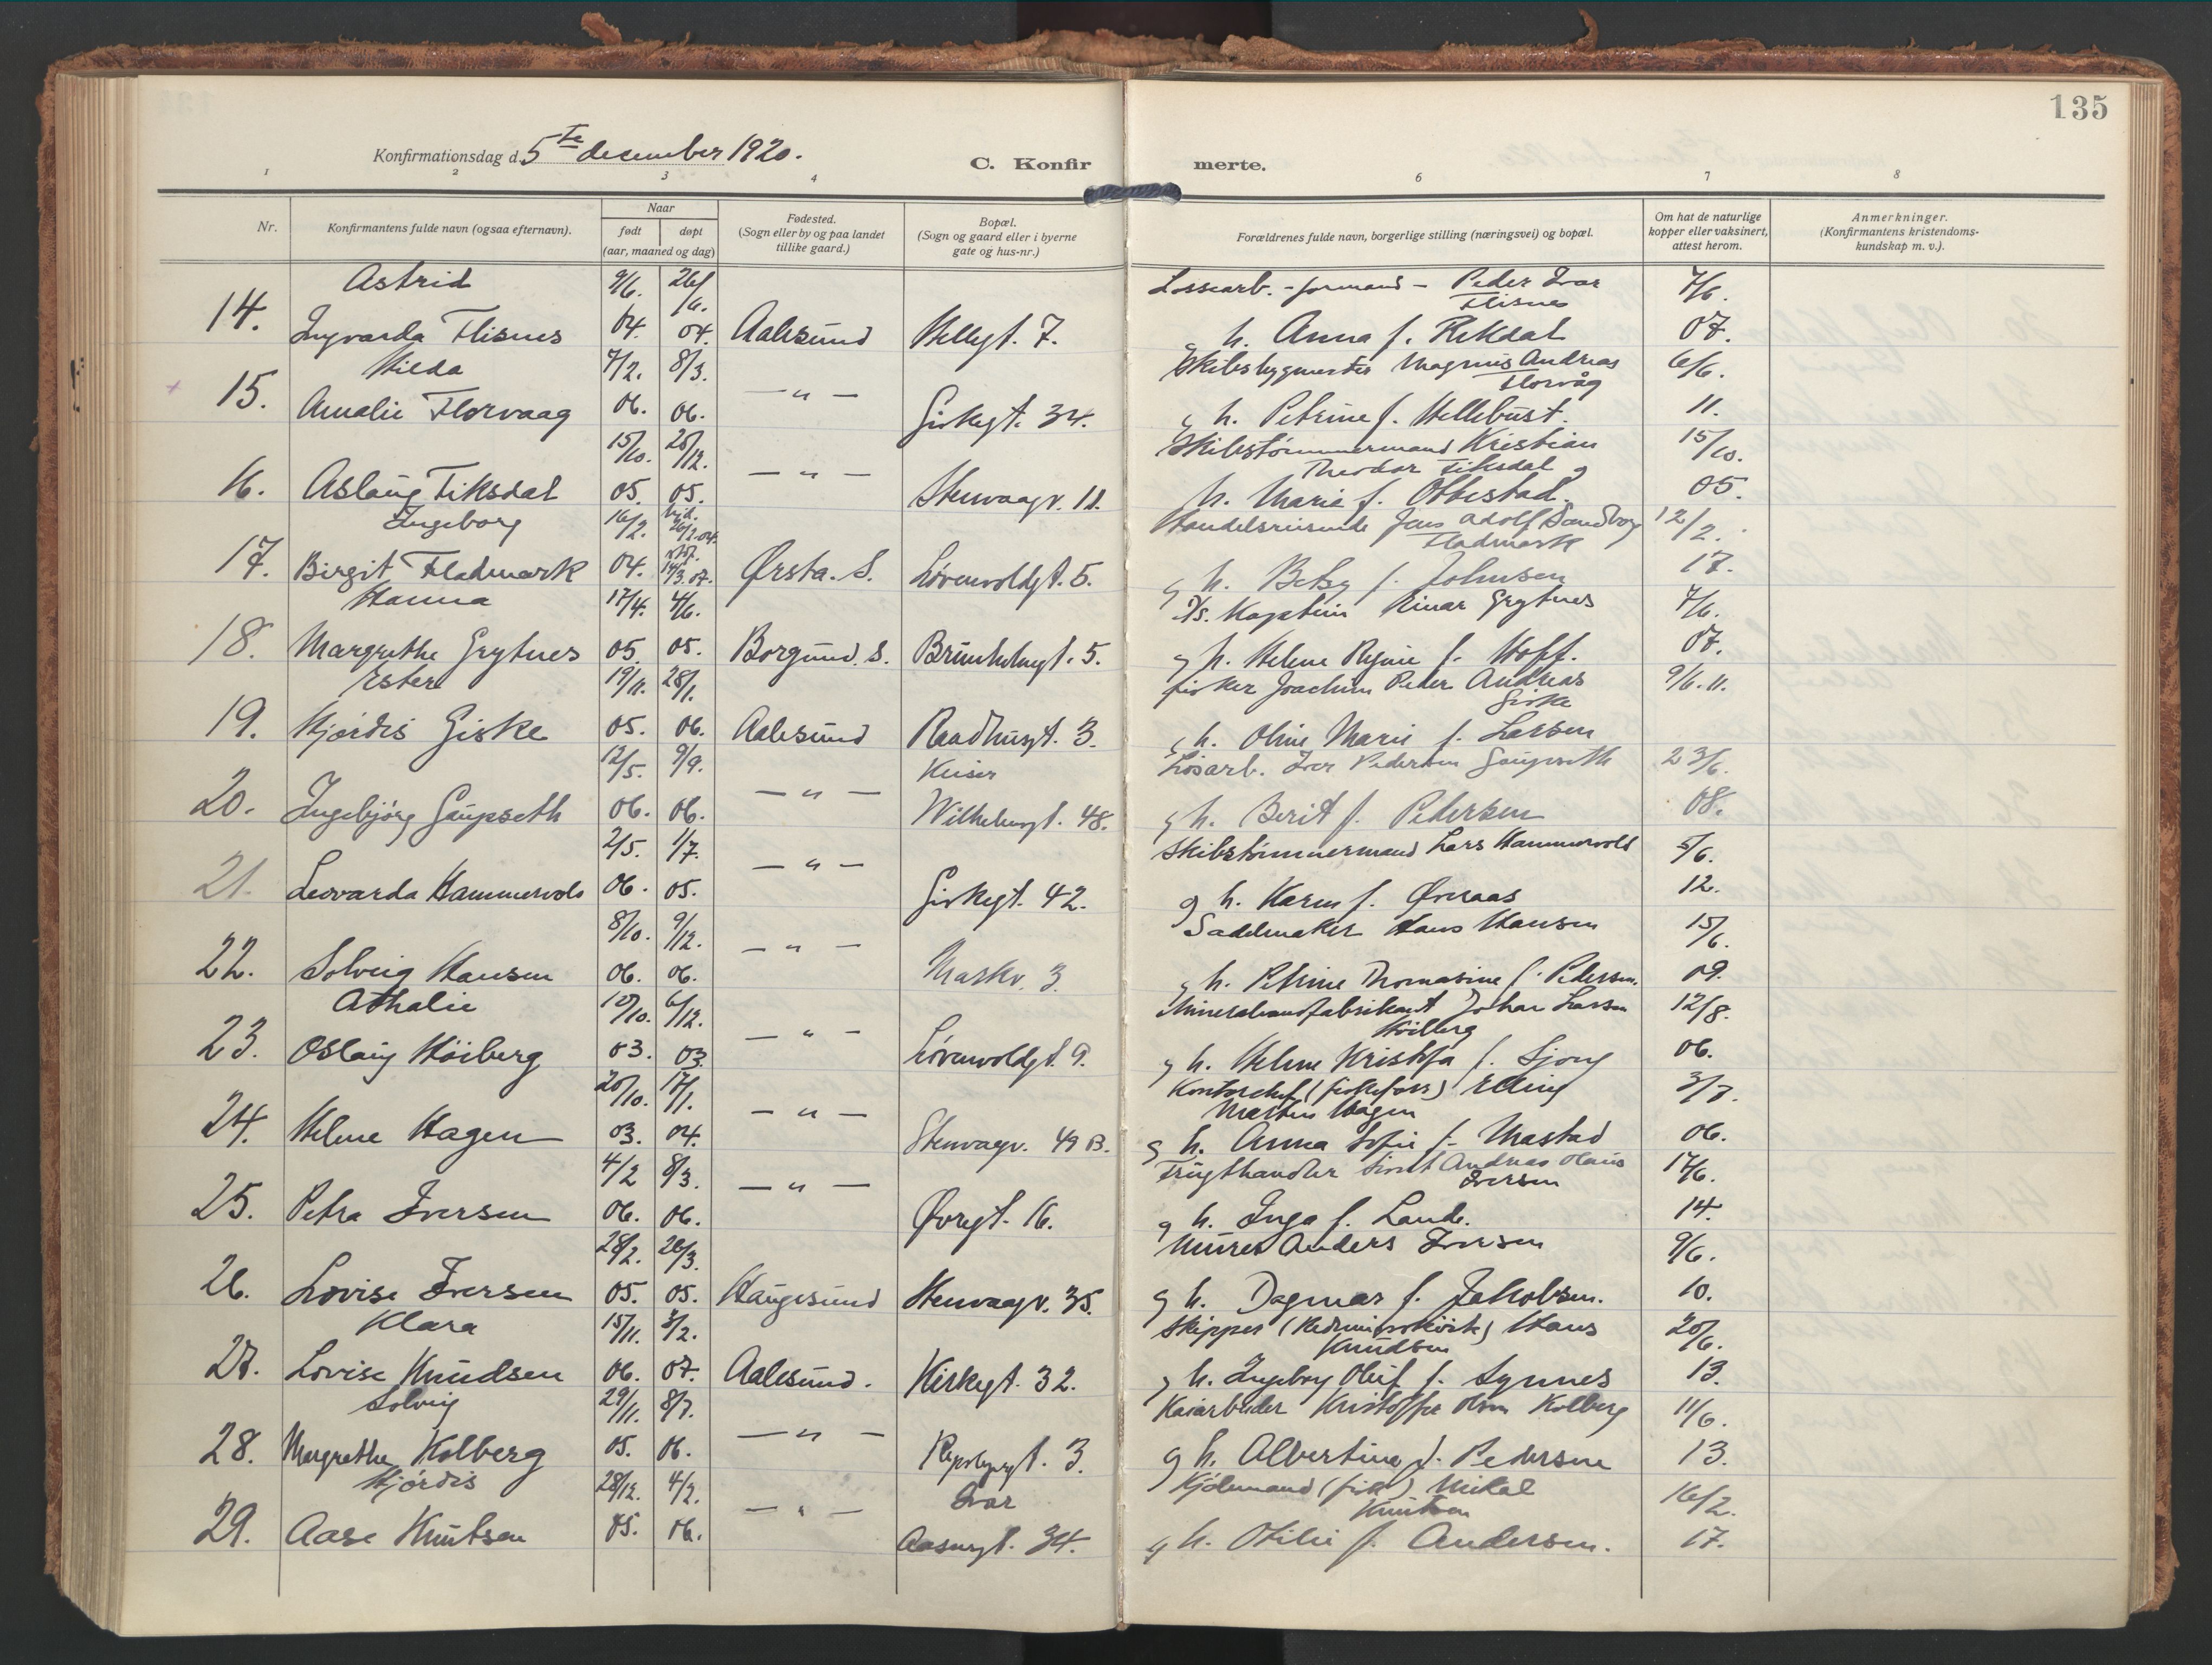 135
Konfirmationsdag d. 5te december 1920.
C. Konfir merte.
1 2 3 4 6 7 8
Nr.
Konfirmantens fulde navn (ogsaa efternavn).
Naar
født døpt
(aar, maaned og dag)
Fødested.
(Sogn eller by og paa landet
tillike gaard.)
Bopæl.
(Sogn og gaard eller i byerne
gate og hus-nr.)
Forældrenes fulde navn, borgerlige stilling (næringsvei) og bopæl.
Om hat de naturlige
kopper eller vaksinert,
attest herom.
Anmerkninger.
(Konfirmantens kristendoms-
kundskap m. v.).
Astrid 9/6. 26/6. Lossearb.-formand - Peder Ivar 7/6.
Flisnes
14. Ingvarda Flisnes 04. 04. Aalesund Hellegt. 7. g h. Anna f. Rekdal 07.
Hilda 7/2. 8/3. Skibsbygmester Magnus Andreas 6/6.
Florvåg
15. Amalie Florvaag 06. 06. — " — Giskegt. 34. g h. Petrine f. Hellebust. 11.
15/10. 25/12. Skibstømmermand Kristian 15/10.
Theodor Fiksdal g
16. Aslaug Fiksdal 05. 05. — " — Stenvaagv. 11. h. Marie f. Obbestad. 05.
Ingeborg 16/2. hjd. 26/2.04. Handelsreisende Jens Adolf Sandborg 12/2.
Fladmark
17. Birgit Fladmark 04. 14/3.07. Ørsta. S. Løvenvoldgt. 5. g h. Betsy f. Johnsen 17.
Hanna 17/4. 4/6. D/s. Kaptein Einar Grytnes 7/6.
18. Margrethe Grytnes 05. 05. Borgund. S. Brunholmgt. 5. g h. Helene Regine f. Hoff. 07.
Ester 19/11. 28/1. fisker Joachim Peder Andreas 9/6.11.
Giske
19. Hjørdis Giske 05. 06. Aalesund Raadhusgt. 3. g h. Oline Marie f. Larsen
12/5. 9/9. Keiser Løsarb. Iver Pedersen Gaupseth 23/6.
20. Ingebjørg Gaupseth 06. 06. — " — Wilhelmsgt. 48. g h. Berit f. Pedersen 08.
2/5. 1/7. Skibstømmermand Lars Hammervold 5/6.
21. Leovarda Hammervold 06. 05. — " — Giskegt. 42. g h. Karen f. Øveraas 12.
8/10. 9/12. Sadelmaker Hans Hansen 15/6.
22. Solveig Hansen 06. 06. — " — Parkv. 3. g h. Petrine Thomasine f. Pedersen. 09.
Athalie 10/10. 6/12. Mineralvandfabrikant Johan Larsen 12/8.
Höiberg
23. Oslaug Höiberg 03. 03. — " — Løvenvoldgt. 9. g h. Helene Kristofa f. Sjong 06.
20/10. 17/1. Kontorchef (fiskeforr) Elling 3/7.
Martin Hagen
24. Helene Hagen 03. 04. — " — Stenvagv. 49 B. g h. Anna Sofie f. Mastad 06.
4/2 8/3. Frugthandler Sivert Andreas Olaus 17/6.
Iversen
25. Petra Iversen 06. 06. — " — Øvregt. 16. g h. Inga f. Lande. 14.
28/2. 26/3. Murer Anders Iversen 9/6.
26. Lovise Iversen 05. 05. Haugesund Stenvaagv. 35. g h. Dagmar f. Jakobsen. 10.
Klara 15/11. 3/2. Skipper Hans 20/6.
Knudsen
27. Lovise Knudsen 06. 07. Aalesund. Kirkegt. 32. g h. Ingeborg Oluf f. Synnes 13.
Solveig 29/11. 8/7. Kaiarbeider Kristoffer Olsen Kolberg 11/6.
28. Margrethe Kolberg 05. 06. — " — 3. g h. Albertine f. Pedersen 13.
Hjördis 28/12. 4/2. Ivar Kjölemand (fisk) Mikal 16/2.
Knutsen
29. Aase Knutsen 05. 06. — " — Aasensgt. 34. g h. Otilie f. Andersen. 17.